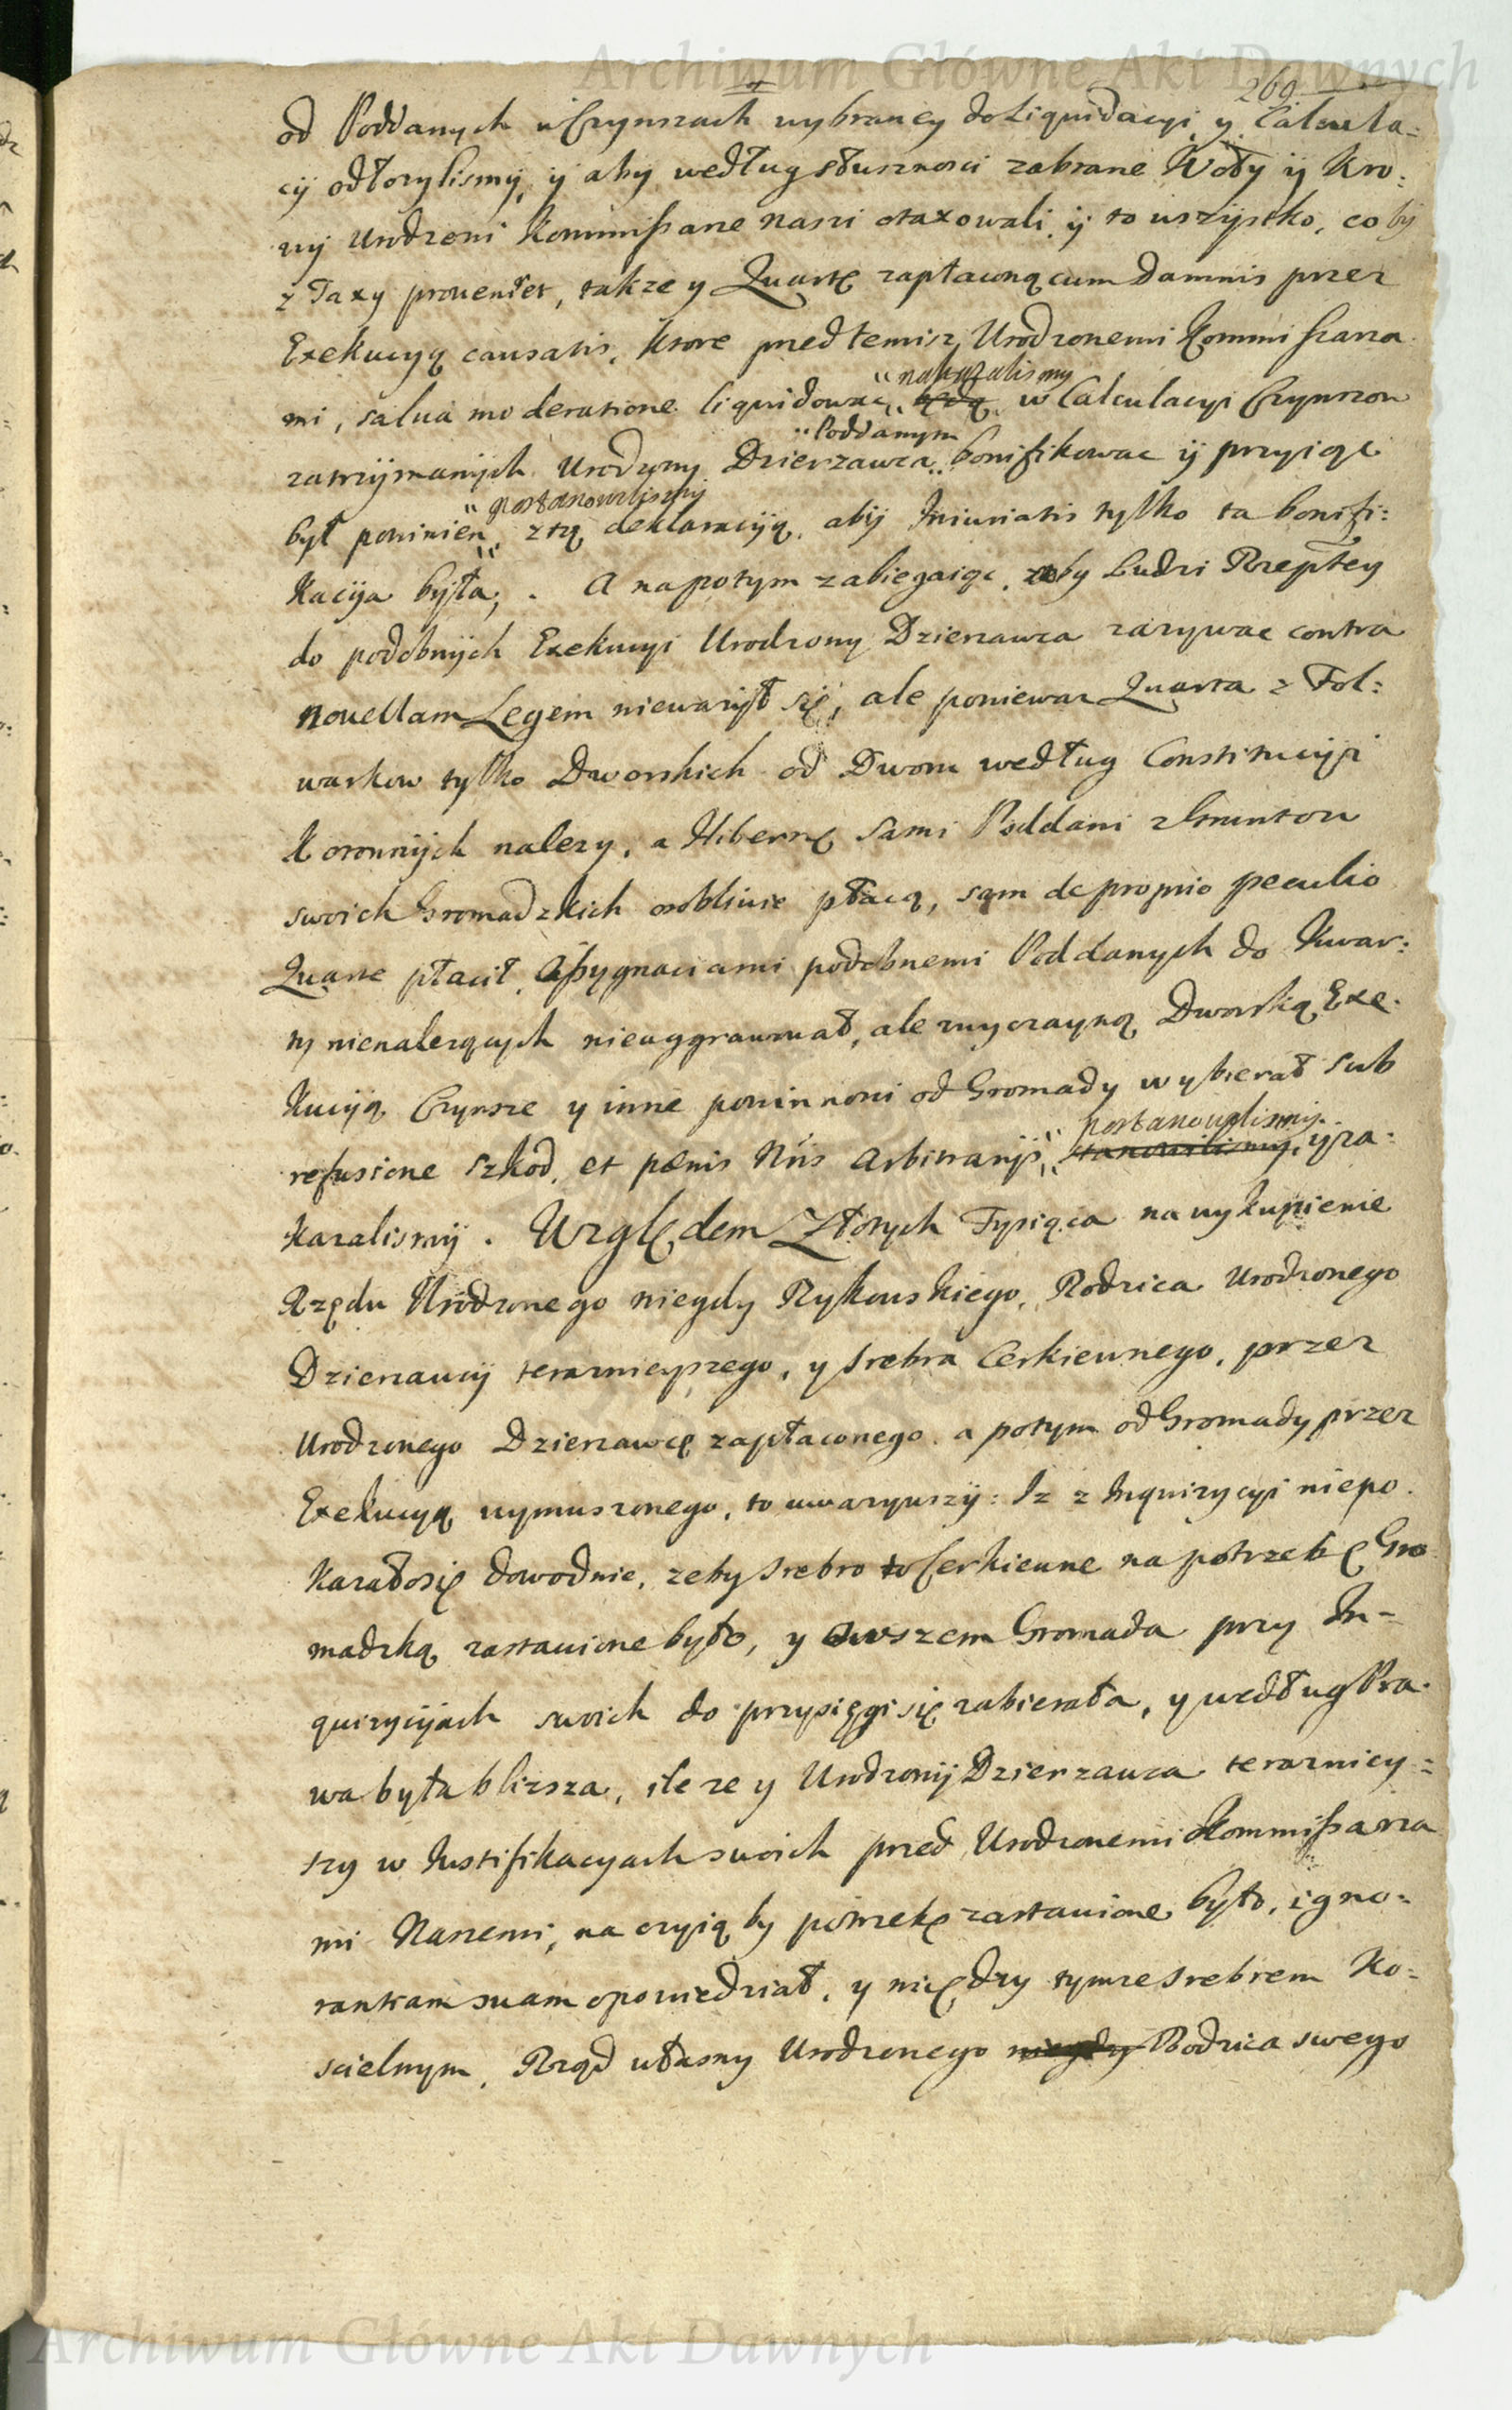 Archiwum Główne Akt Dawnych
269
od Poddanych w Czynszach wybraney do Liquidacyi y Calcula=
cÿ odłozylismÿ, ÿ aby według słusznosci zabrane Woły ÿ Kro=
wÿ Urodzeni Kommissarze nasi otaxowali, ÿ to wszÿstko, co by
z Taxy proveniet, takze y Quartę zapłaconą cum Damnis przez
Exekucyą causatis, ktore przed temisz Urodzonemi Kommissarza
mi, salva moderatione liquidowac, będą w Calculacyi Czynszow
nakazalismy
zatrzÿmanÿch Urodzony Dzierzawca bonifikowac ÿ przyiąc
Poddanym
był powinien, z tą deklaracÿą, abÿ Iniuriatis tylko ta bonifi=
postanowilismÿ
kacÿa bÿła, . A napotym zabiegaiąc, zeby Ludzi Rzeptey
do podobnÿch Exekucyi Urodzony Dzierzawca zazywac contra
novellam Legem niewazÿł się, ale poniewaz Quarta z Fol=
warkow tylko Dworskich od Dworu według Constitucÿi
Koronnÿch nalezy, a Hibernę sami Poddani z Gruntow
swoich Gromadzkich osobliwie płacą, sam de proprio peculio
Quarte płacił, Assygnaciami podobnemi Poddanych do Kwar=
ty nienalezących nieaggrawował, ale zwyczayną Dworską Exe=
kucÿą Czynsze y inne powinnosci od Gromady wybierał sub
refusione szkod, et pænis Nr̃is Arbitrarÿs, stanowilismy, ÿ za=
postanowilismÿ
kazalismÿ. Względem Złotych Tysiąca na wykupienie
Rzędu Urodzonego niegdy Rykowskiego, Rodzica Urodzonego
Dzierzawcÿ teraznieyszego, y srebra Cerkiewnego, przez
Urodzonego Dzierzawcę zapłaconego, a potym od Gromady przez
Exekucyą wymuszonego, to uwazywszÿ: Iz z Inquizycyi niepo=
kazałosię dowodnie, zeby srebro to Cerkiewne na potrzebę Gro
madzką zastawione było, y owszem Gromada przy In=
quizycÿach swoich do przysięgi się zabierała, y według Pra=
wa była blizsza, ile ze y Urodzonÿ Dzierzawca terazniey=
szy w Iustifikacyach swoich przed Urodzonemi Kommissarza
mi Naszemi, na czyią by potrzebę zastawione było, igno=
rantiam suam opowiedział, y między tymze srebrem Ko=
scielnym, Rząd własny Urodzonego niegdy Rodzica swego
Archiwum Główne Akt Dawnych